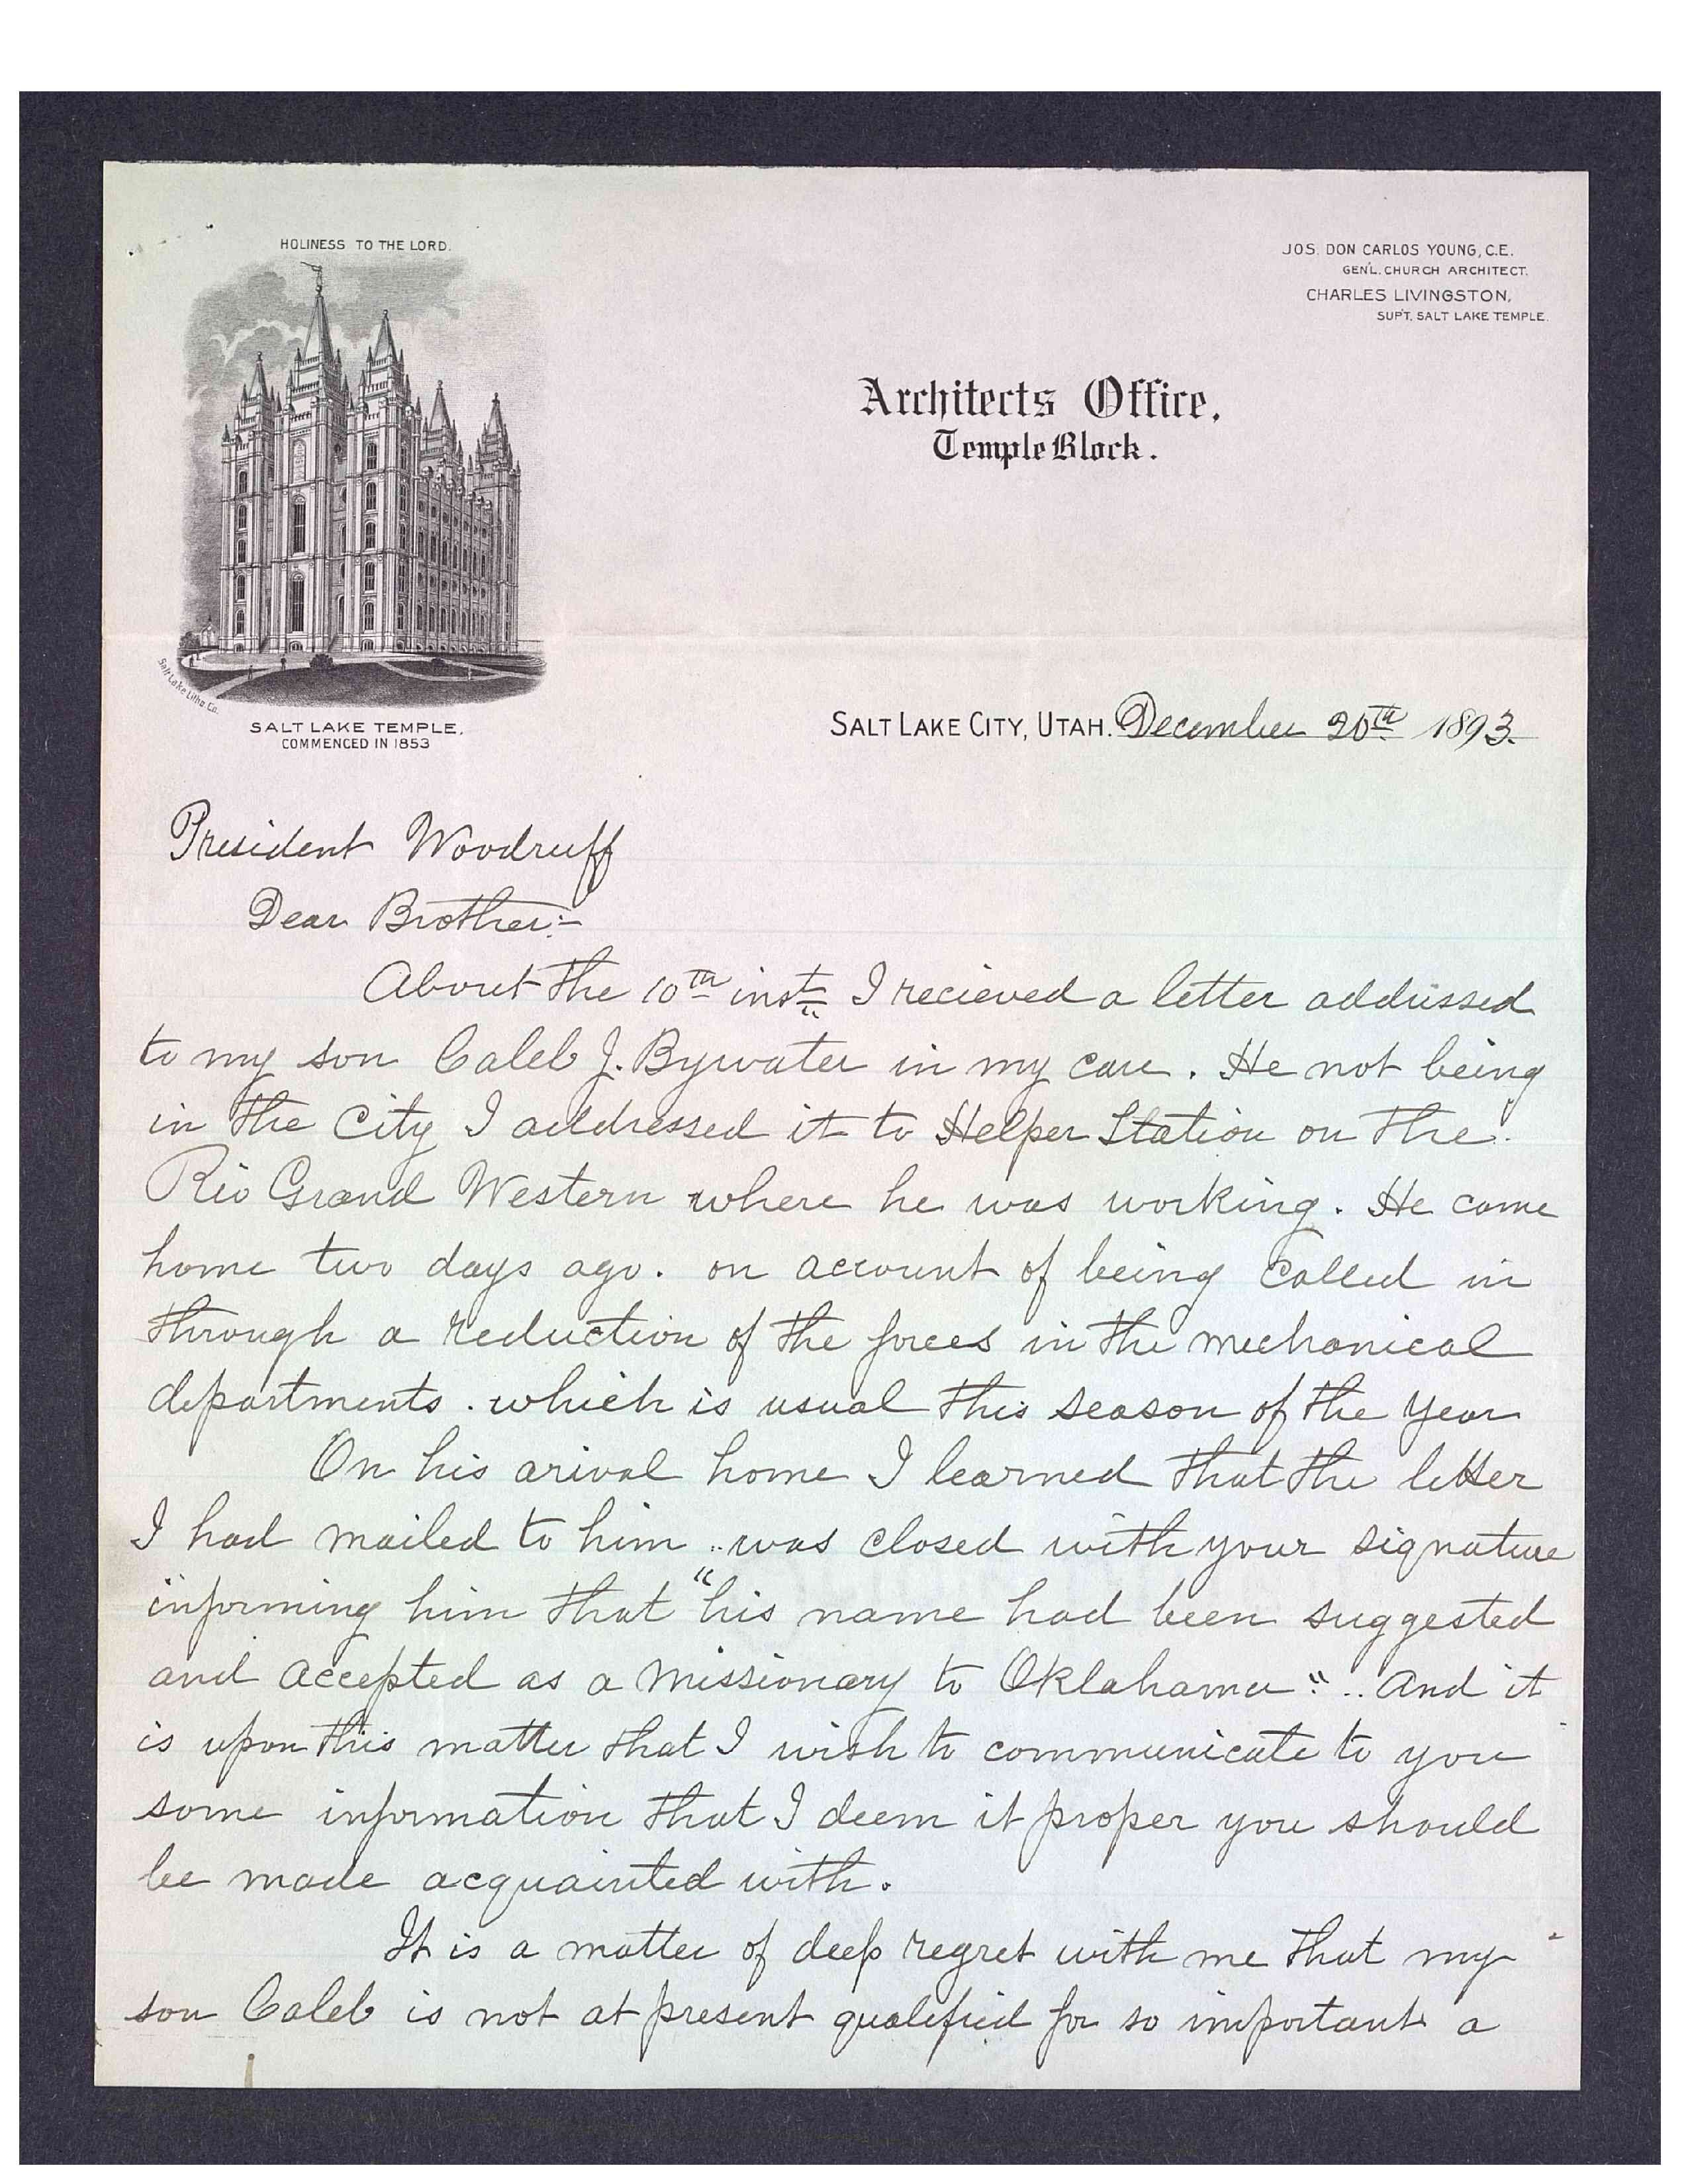 HOLINESS TO THE LORD.
JOS. DON CARLOS YOUNG, C.E.
GEN'L. CHURCH ARCHITECT.
CHARLES LIVINGSTON,
SUP'T. SALT LAKE TEMPLE.
Architects Office,
Temple Block.
Salt Lake Litho. Co.
SALT LAKE TEMPLE,
COMMENCED IN 1853
SALT LAKE CITY, UTAH. December 20th 1893.
President Woodruff
Dear Brother:-
About the 10th inst. I recieved a letter addressed
to my son Caleb J. Bywater in my care. He not being
in the City I addressed it to Helper Station on the
Rio Grand Western where he was working. He came
home two days ago. on account of being called in
through a reduction of the forces in the mechanical
departments. which is usual this season of the year
On his arival home I learned that the letter
I had mailed to him was closed with your signature
informing him that "his name had been suggested
and accepted as a missionary to Oklahama". And it
is upon this matter that I wish to communicate to you
some information that I deem it proper you should
be made acquainted with.
It is a matter of deep regret with me that my
son Caleb is not at present qualified for so important a